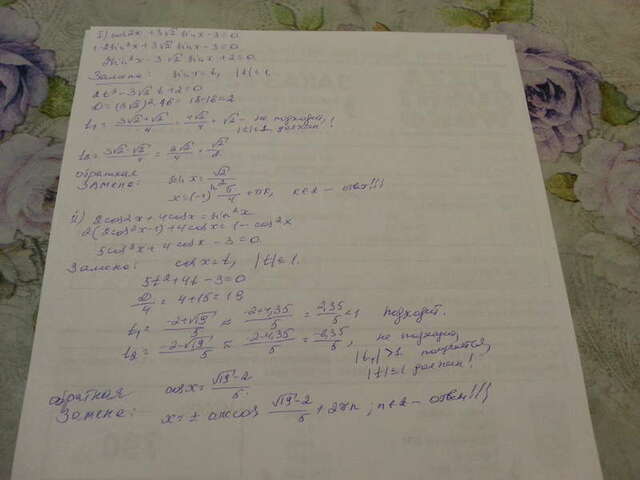 I) cos2x + 3√2 sinx - 3 = 0.
1 - 2sin²x + 3√2 sinx - 3 = 0
2sin²x - 3√2 sinx + 2 = 0.
Замена: sinx = t, |t| ≤ 1.
2t² - 3√2 t + 2 = 0
D = (3√2)² - 16 = 18 - 16 = 2
t₁ = (3√2 + √2)/4 = 4√2/4 = √2 - не подходит, |t| ≤ 1 должен!
t₂ = (3√2 - √2)/4 = 2√2/4 = √2/2
обратная замена: sinx = √2/2
x = (-1)ⁿ π/4 + πn, n∈z - ответ!!!
II) 2cos2x + 4cosx = sin²x
2(2cos²x - 1) + 4cosx = 1 - cos²x
5cos²x + 4cosx - 3 = 0.
Замена: cosx = t, |t| ≤ 1.
5t² + 4t - 3 = 0
D/4 = 4 + 15 = 19
t₁ = (-2 + √19)/5 ≈ (-2 + 4,35)/5 = 2,35/5 < 1 подходит.
t₂ = (-2 - √19)/5 ≈ (-2 - 4,35)/5 = -6,35/5, не подходит,
|t₂| > 1 получается,
|t| ≤ 1 должен!
обратная замена: cosx = (√19 - 2)/5.
x = ± arccos (√19 - 2)/5 + 2πn; n∈z - ответ!!!